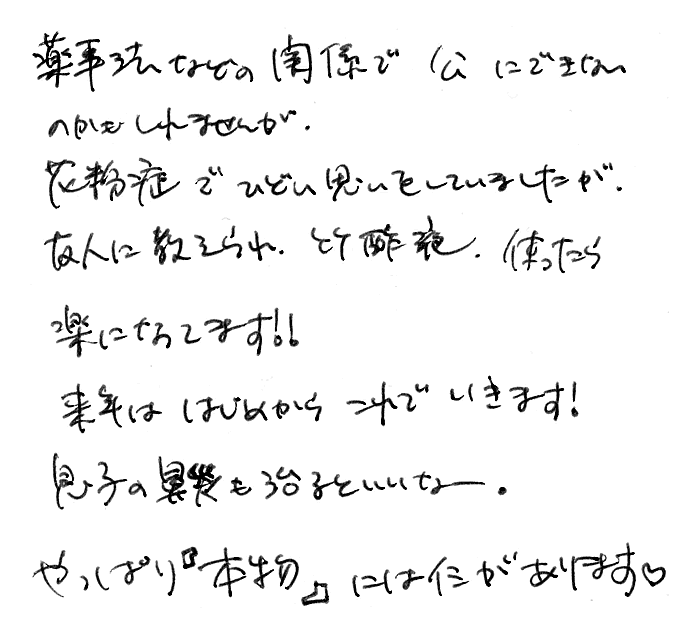 薬事法などの関係で 公にできない
のかもしれませんが、
花粉症でひどい思いをしていましたが、
友人に教えられ、竹酢液、使ったら
楽になってます!!
来年は はじめから これで いきます!
息子の鼻炎も治るといいなー。
やっぱり『本物』には仁があります♡